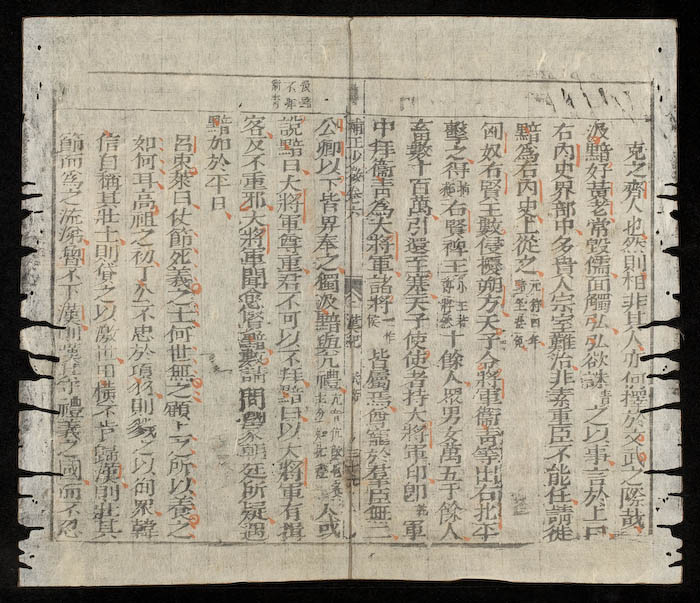 克之齊人也然則相非其人亦何擇於文武之陞哉
汲黯好黃老常毀儒面觸弘弘欲誅之以事言於上曰
右內史界部中多貴人宗室難治非素重臣不能任請徙
黯爲右內史上從之
匈奴右賢王數侵擾朔方天子令將軍衛青等出右北平
擊之得右賢裨王十餘人衆男女萬五千餘人
畜數十百萬引還至塞天子使使者持大將軍印卽軍
中拜衛青爲大將軍諸將皆屬焉尊寵於羣臣無二
公卿以下皆卑奉之獨汲黯與亢禮人或
說黯曰大將軍尊重君不可以不拜黯曰以大將軍有揖
客反不重邪大將軍聞愈賢黯數請問國家朝廷所疑遇
黯加於平日
呂東萊曰仗節死義之士何世無之顧上之所以養之
如何耳高祖之初丁公不忠於項羽則戮之以徇衆韓
信自稱其壯士則貸之以激田橫不肯歸漢則壯其
節而
漢則漢守禮義之國而不忍